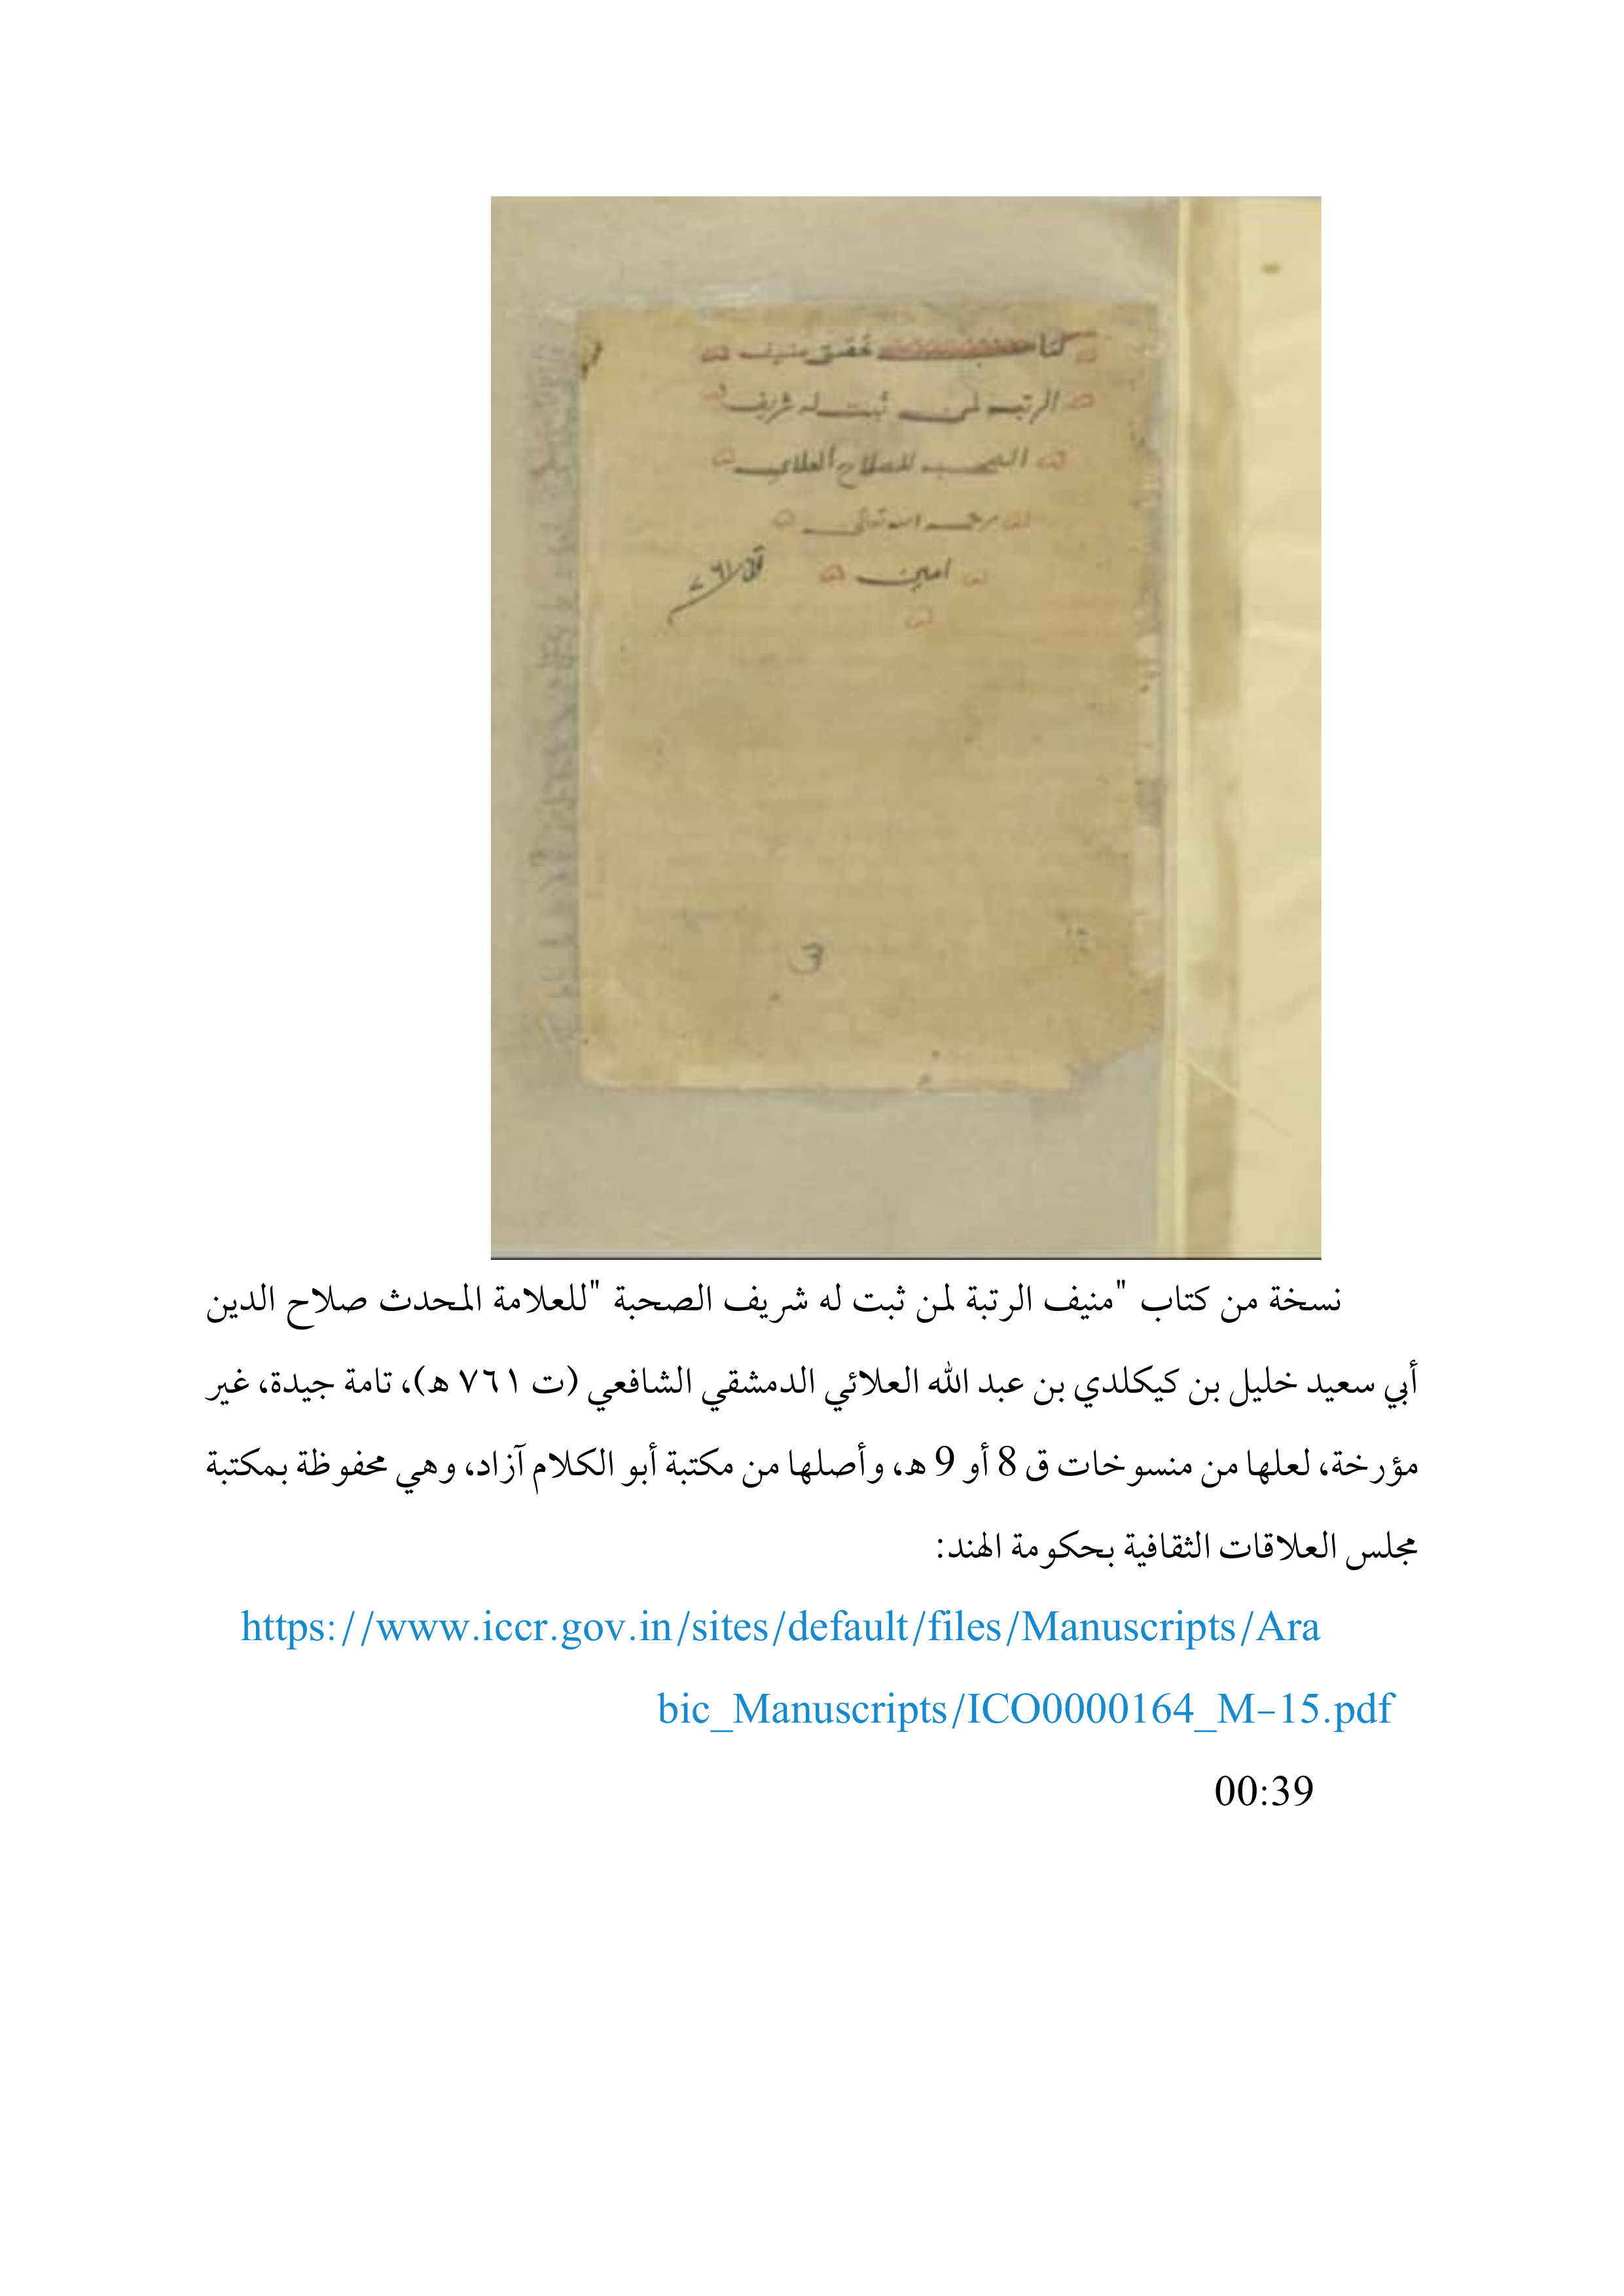 كتاب تحقيق منيف
الرتبه لمن ثبت له شريف
الصحبه للصلاح العلاي
رحمه الله تعالى
امين
٧٦١
3
نسخة من كتاب "منيف الرتبة لمن ثبت له شريف الصحبة "للعلامة المحدث صلاح الدين
أبي سعيد خليل بن كيكلدي بن عبد الله العلائي الدمشقي الشافعي (ت ٧٦١ ه)، تامة جيدة، غير
مؤرخة، لعلها من منسوخات ق 8 أو 9 ه، وأصلها من مكتبة أبو الكلام آزاد، وهي محفوظة بمكتبة
مجلس العلاقات الثقافية بحكومة الهند:
https://www.iccr.gov.in/sites/default/files/Manuscripts/Ara
bic_Manuscripts/ICO0000164_M-15.pdf
00:39